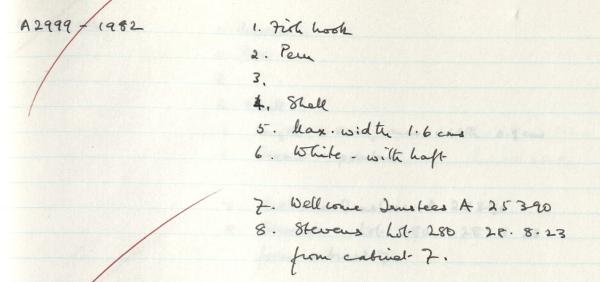 A2999 - 1982
1. Fish hook
2. Peru
3.
4. Shell
5. Max. width 1.6 cms
6. White - with haft
7. Wellcome Trustees A 25390
8. Stevens Lot 280 28.8.23
from cabinet 7.